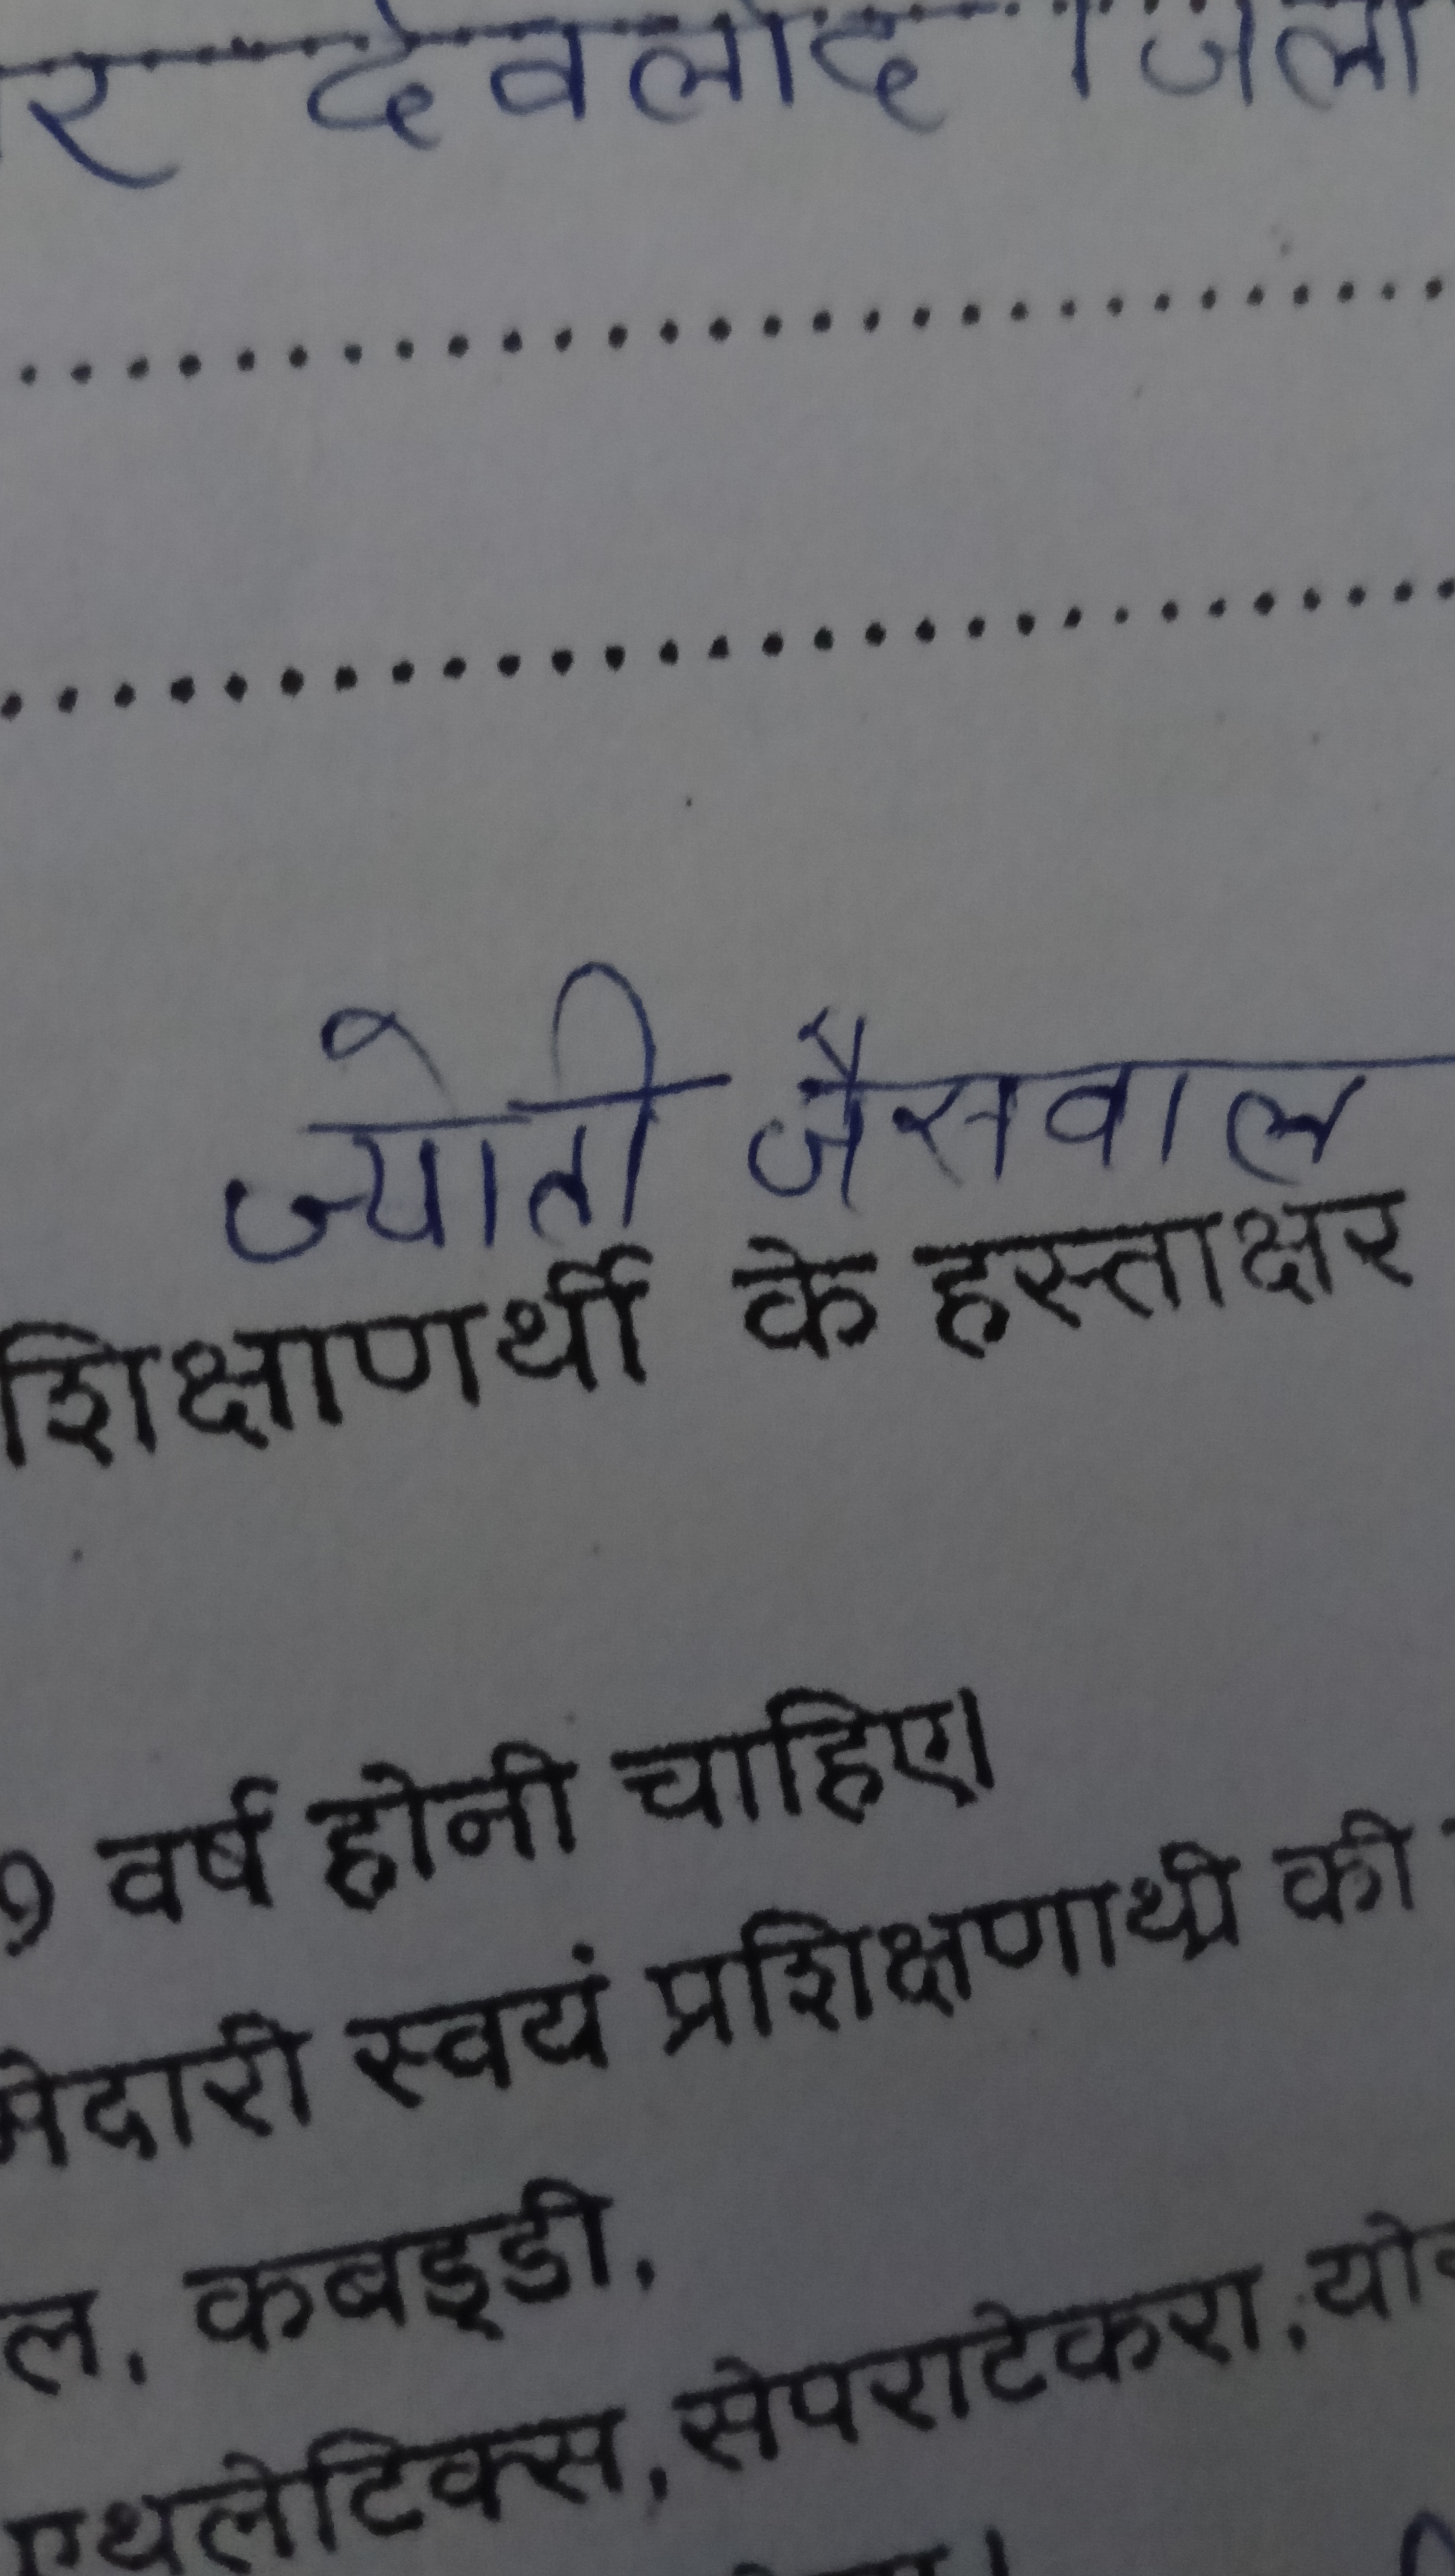 र देवलोंद जिला
ज्योती जैसवाल
शिक्षाणर्थी के हस्ताक्षर
९ वर्ष होनी चाहिए।
मेदारी स्वयं प्रशिक्षणार्थी की
ल, कबड्डी,
एथलेटिक्स, सेपराटेकरा, यो